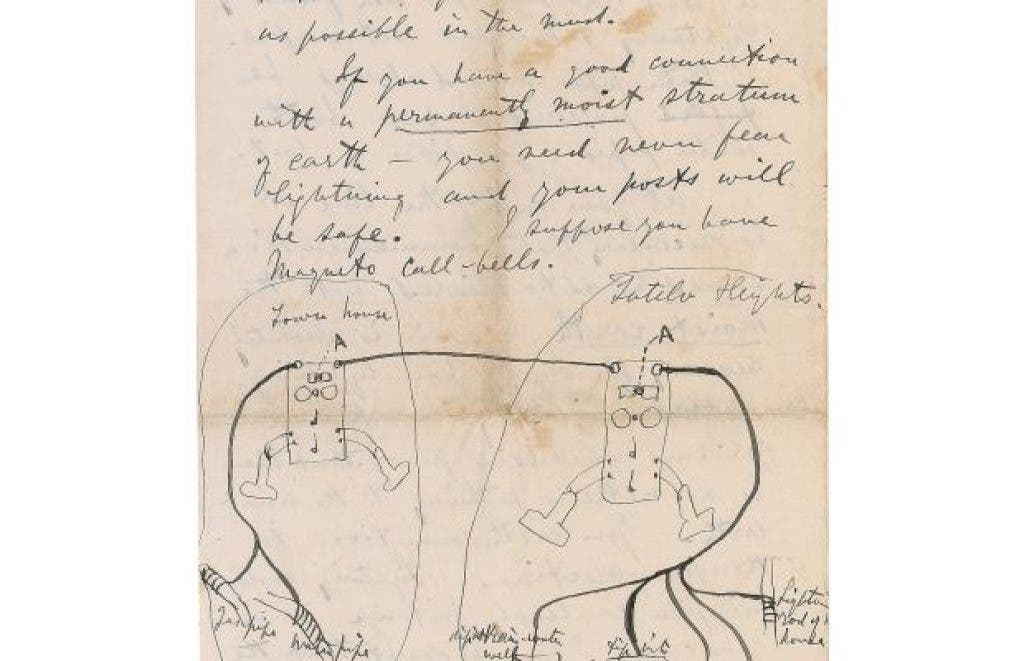 as possible in the mud.
If you have a good connection
with a permanently moist stratum
of earth — you need never fear
lightning and your posts will
be safe. I suppose you have
Magneto call-bells.
Tutelo Heights.
Town house
A
A
Gas pipe
water pipe
rain-water
well
Lightni
rod of
house